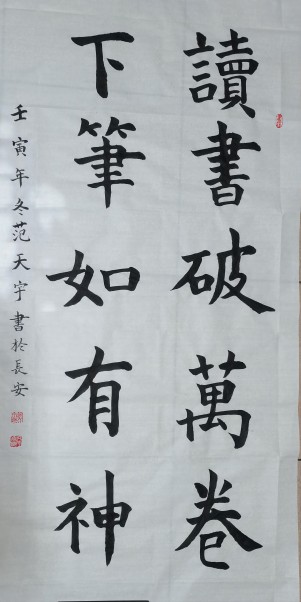 讀書破萬卷
下筆如有神
壬寅年冬范天宇書於長安